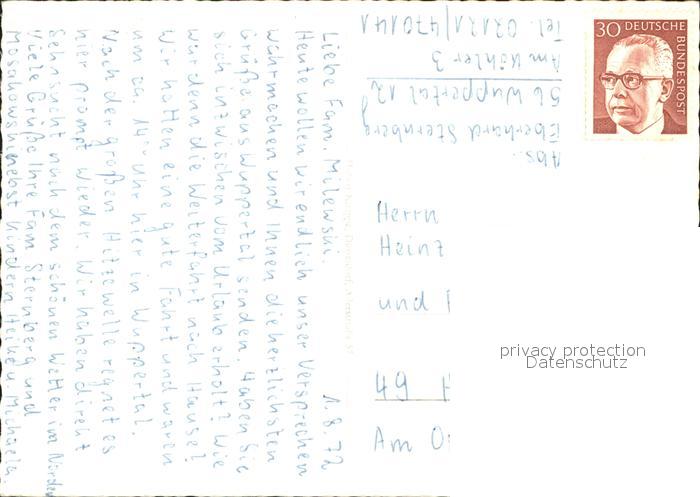 1.8.72
Liebe Fam. Milewski.
Heute wollen wir endlich unser Versprechen
wahrmachen und Ihnen die herzlichsten
Grüße aus Wuppertal senden. Haben Sie
sich inzwischen vom Urlaub erholt? Wie
wurden die Weiterfahrt nach Hause?
Wir hatten eine gute Fahrt und waren
um ca. 14°° Uhr hier in Wuppertal.
Nach der großen Hitzewelle regnet es
hier prompt wieder. Wir haben direkt
Sehnsucht nach dem schönen Wetter im Norden
Viele Grüße Ihre Fam Sternberg und
nebst Kindern Heike u Michaela
Abs.:
Eberhard Sternberg
56 Wuppertal 12
Am Köhler 3
Tel. 02121/470141
30 DEUTSCHE
BUNDESPOST
Herrn
Heinz
und
49
Am
privacy protection
Datenschutz